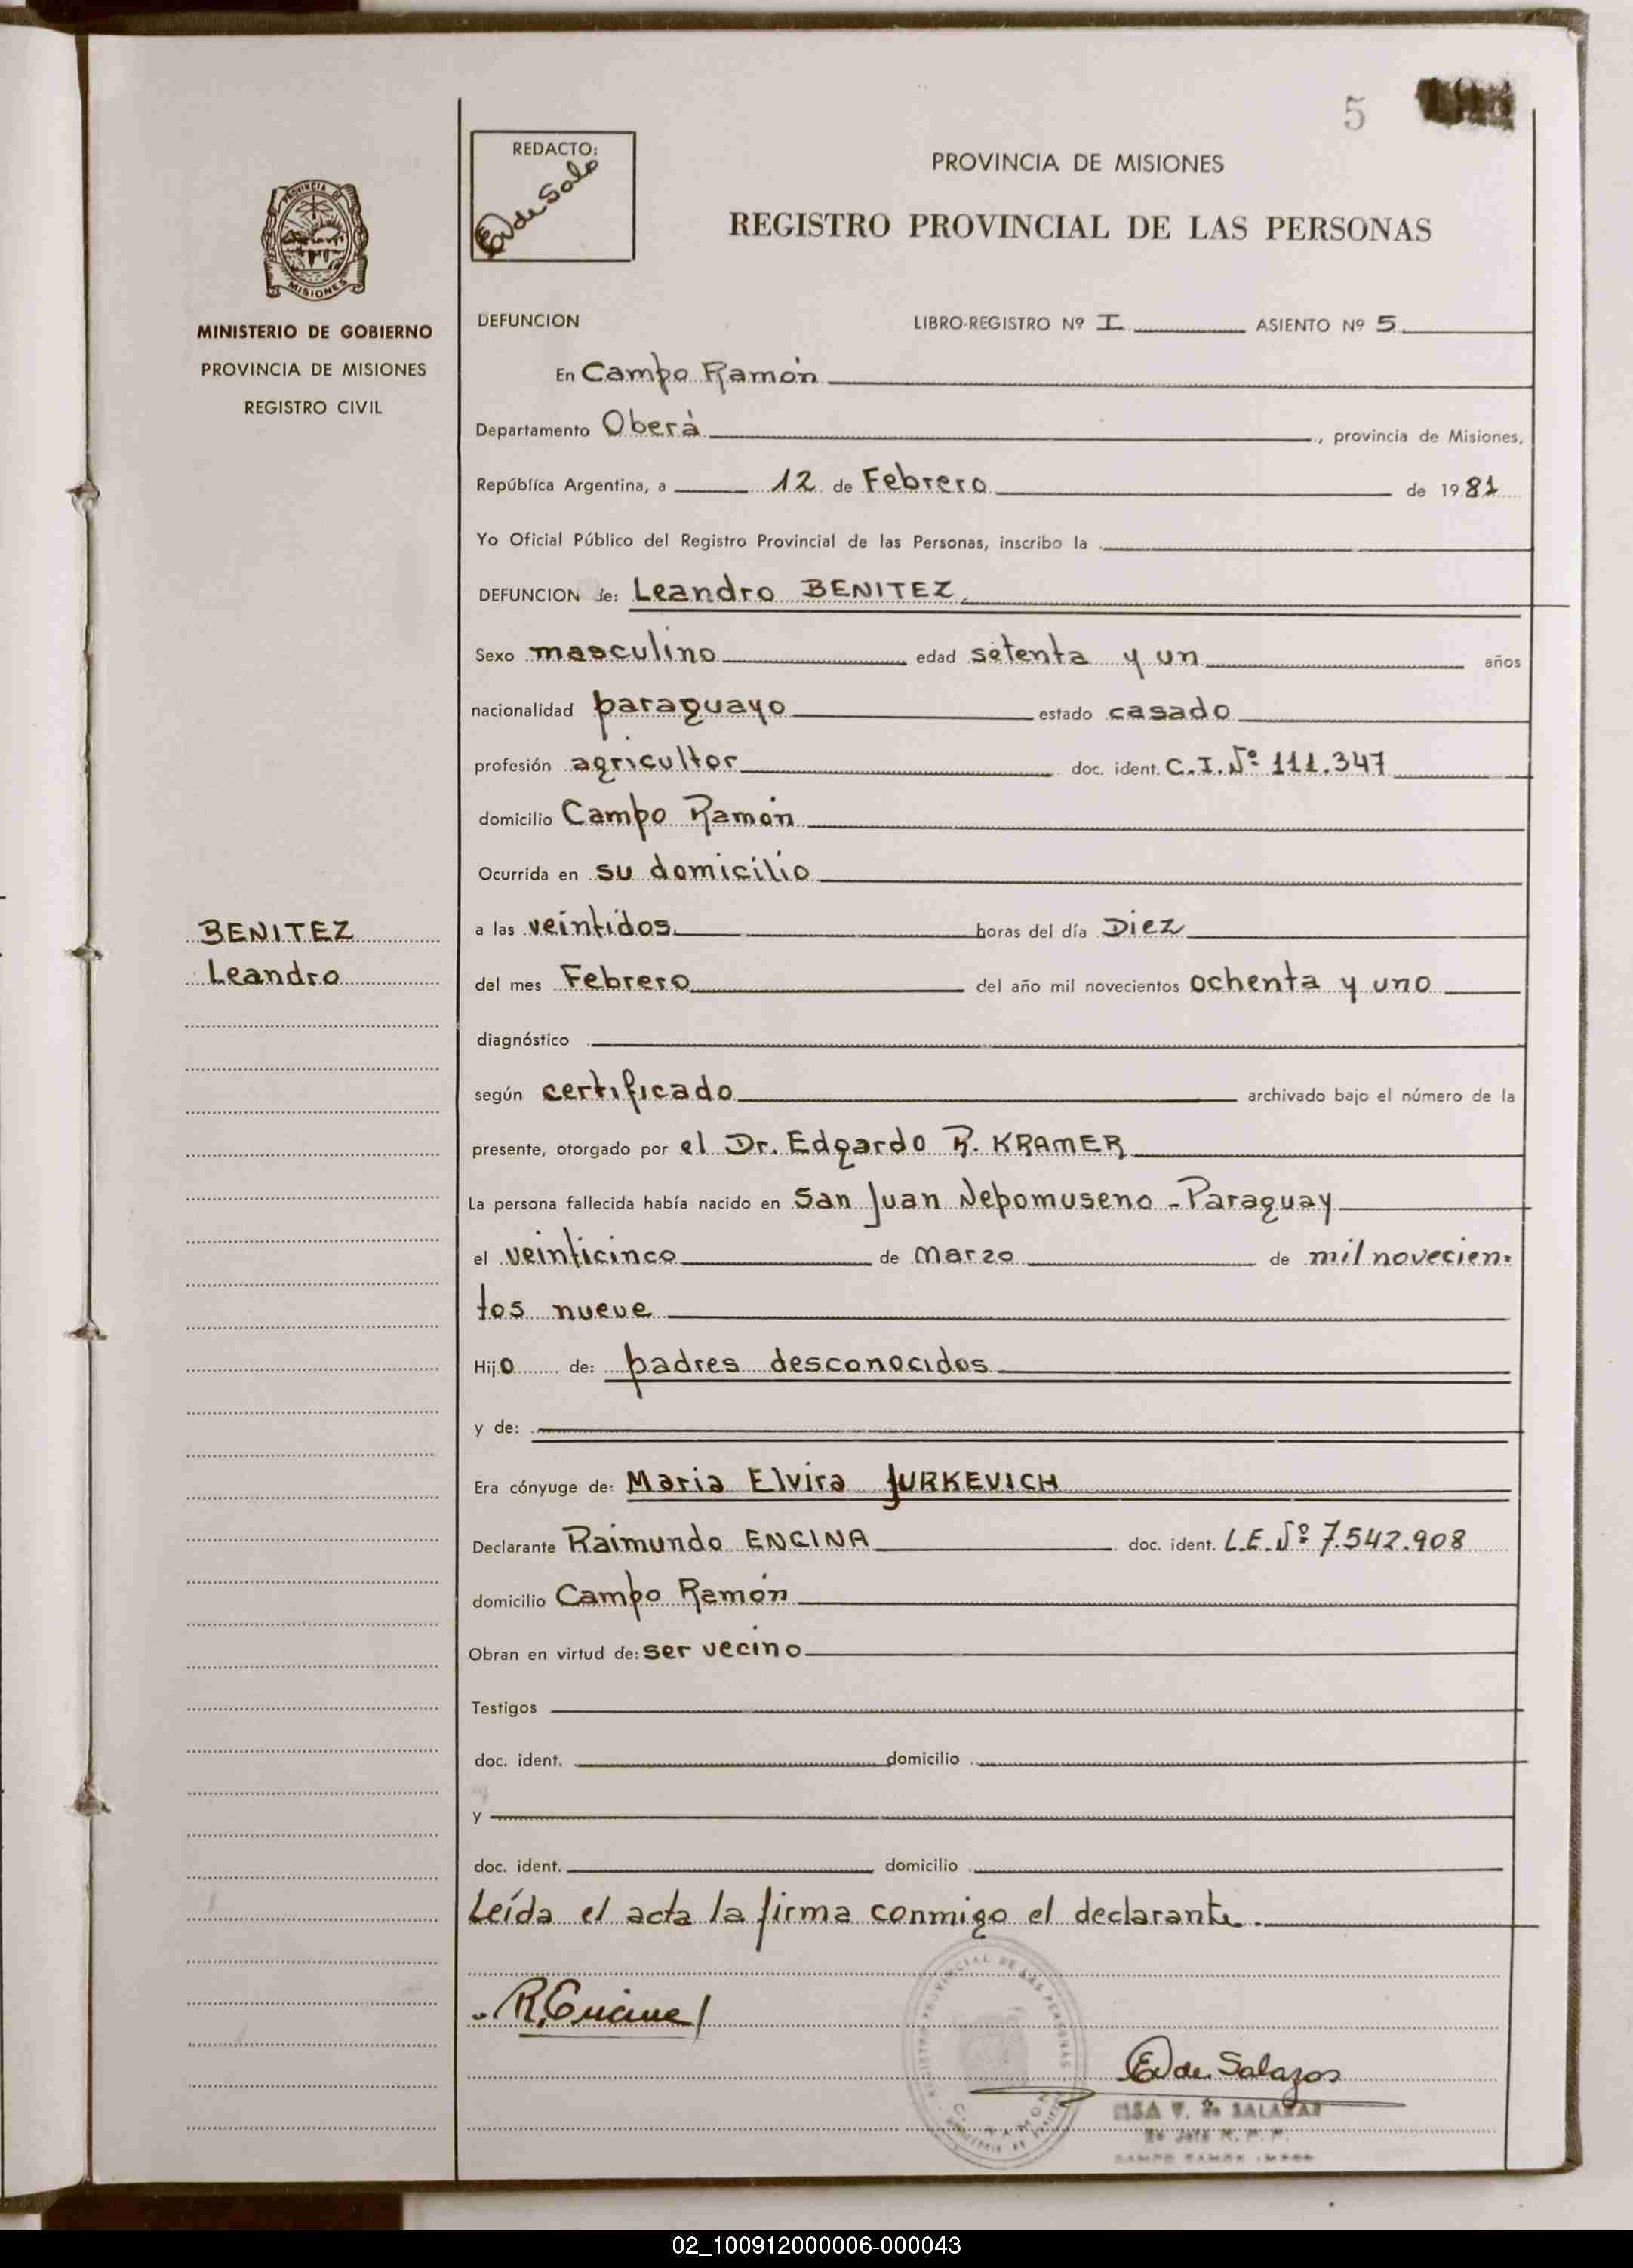 5
REDACTO:
PROVINCIA DE MISIONES
REGISTRO PROVINCIAL DE LAS PERSONAS
PROVINCIA DE
MISIONES
MINISTERIO DE GOBIERNO
PROVINCIA DE MISIONES
REGISTRO CIVIL
BENITEZ
Leandro
DEFUNCION LIBRO-REGISTRO Nº I ASIENTO Nº 5
En Campo Ramón
Departamento Oberá, provincia de Misiones,
República Argentina, a 12 de Febrero de 1981
Yo Oficial Público del Registro Provincial de las Personas, inscribo la
DEFUNCION de: Leandro BENITEZ
Sexo masculino edad setenta y un años
nacionalidad paraguayo estado casado
profesión agricultor doc. ident. C.I. Nº 111.347
domicilio Campo Ramón
Ocurrida en su domicilio
a las veintidos horas del día Diez
del mes Febrero del año mil novecientos ochenta y uno
diagnóstico
según certificado archivado bajo el número de la
presente, otorgado por el Dr. Edgardo R. KRAMER
La persona fallecida había nacido en San Juan Nepomuseno - Paraguay
el veinticinco de marzo de mil novecien-
tos nueve
Hijo de: padres desconocidos
y de:
Era cónyuge de: Maria Elvira JURKEVICH
Declarante Raimundo ENCINA doc. ident. L.E. Nº 7.542.908
domicilio Campo Ramón
Obran en virtud de: ser vecino
Testigos
doc. ident. domicilio
y
doc. ident. domicilio
Leída el acta la firma conmigo el declarante.
R. Encina
de Salazar
ELSA V. de SALAZAR
02_100912000006-000043